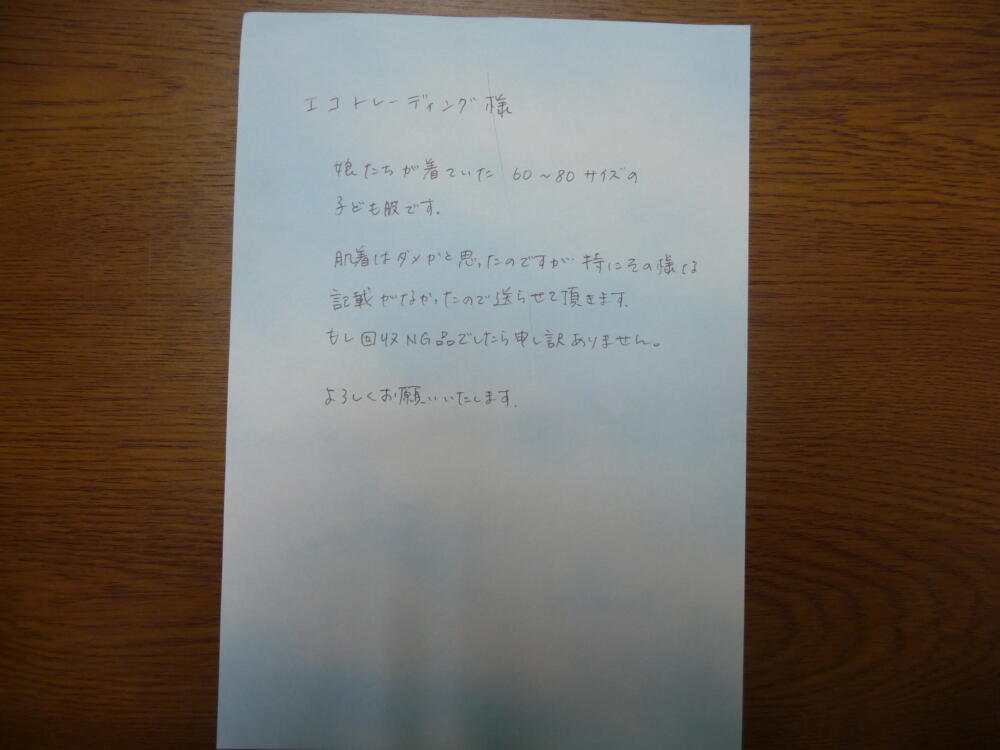 エコトレーディング様
娘たちが着ていた 60~80サイズの
子ども服です。
肌着はダメかと思ったのですが 特にその様な
記載がなかったので送らせて頂きます.
もし回収NG品でしたら申し訳ありません。
よろしくお願いいたします.